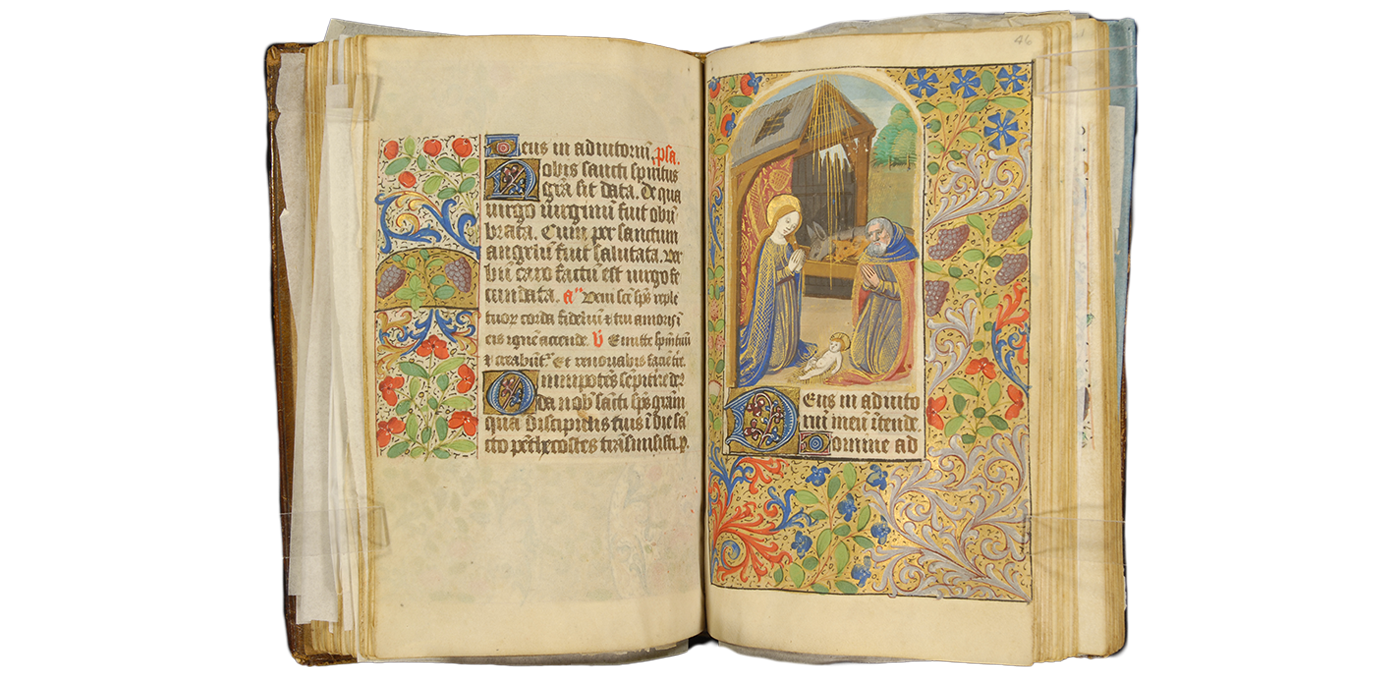 Deus in adiutoriū. psa.
Nobis sancti spiritus
gr̄a sit data. De qua
uirgo uirginū fuit obū
brata. Cum per sanctum
angelū fuit salutata. Ver
bū caro factū est uirgo fe
cundata. a᷑ Veni sc̄e sp̄s reple
tuoꝝ corda fideliū ⁊ tui amoris ī
eis ignē accende. V̄ Emitte spiritum
⁊ creabūt᷑ Et renouabis faciē t̄re.
Omnipotēs sempit̄ne de᷑
da nob̄ sācti sp̄s gr̄am
quā discipulis tuis ī die sā
cto pēthecostes trāsmisisti. p̱.
46
Deus in adiuto
riū meū ītende.
Domine ad